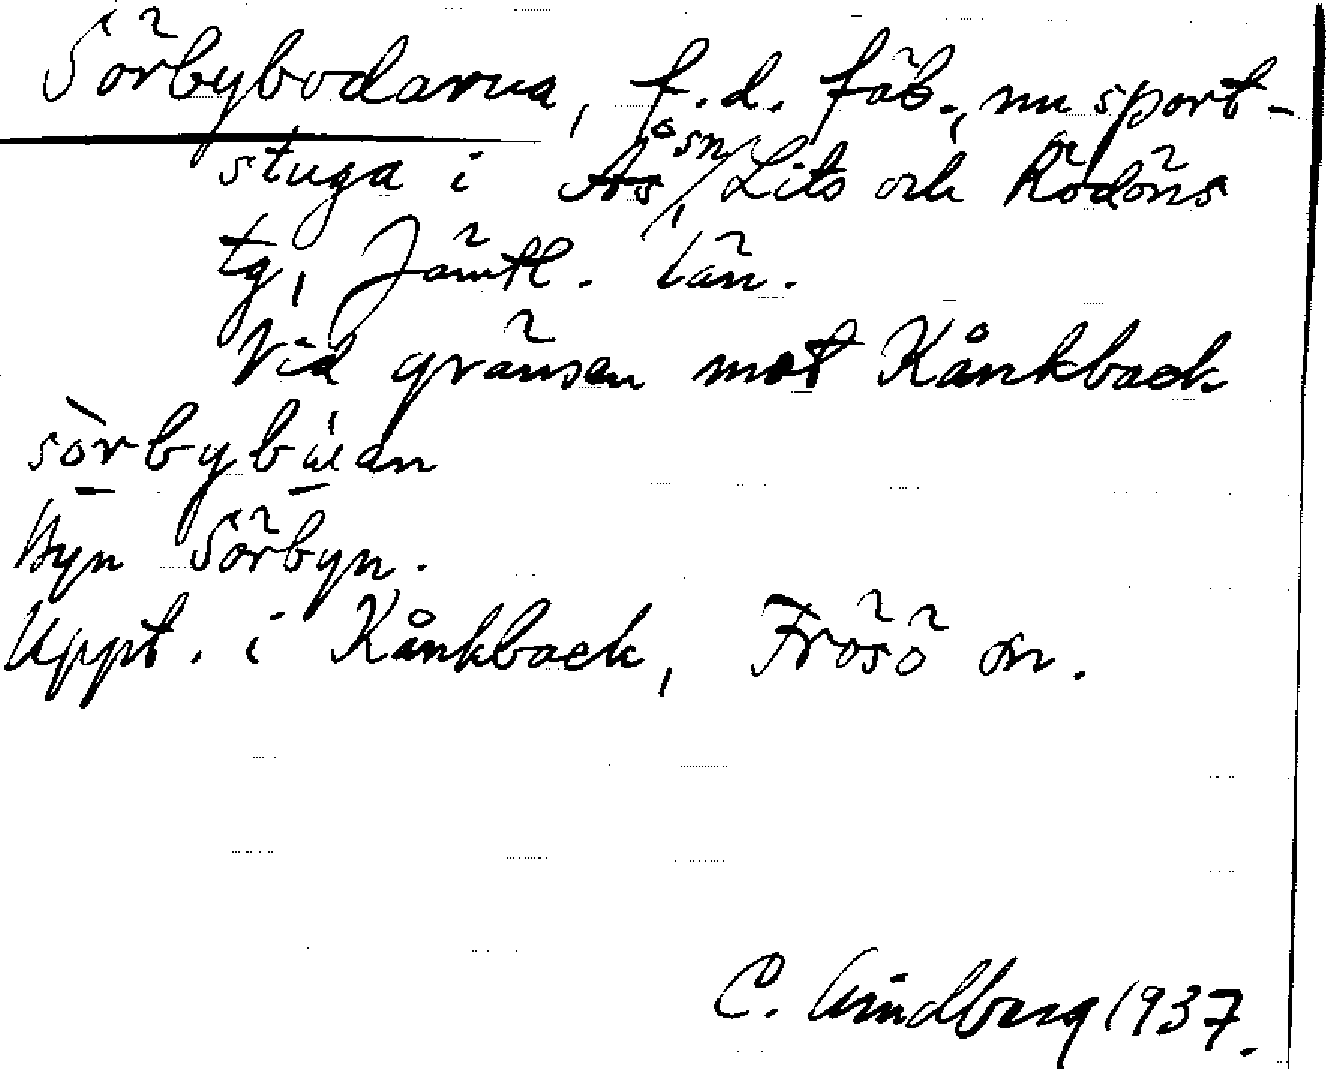 Sörbybodarna, f.d. fäb., nu sport-
stuga i Ås sn, Lits och Rödöns
tg, Jämtl. län.
Vid gränsen mot Kånkback
Byn Sörbyn.
Uppt. i Kånkback, Frösö sn.
C. Lindberg 1937.